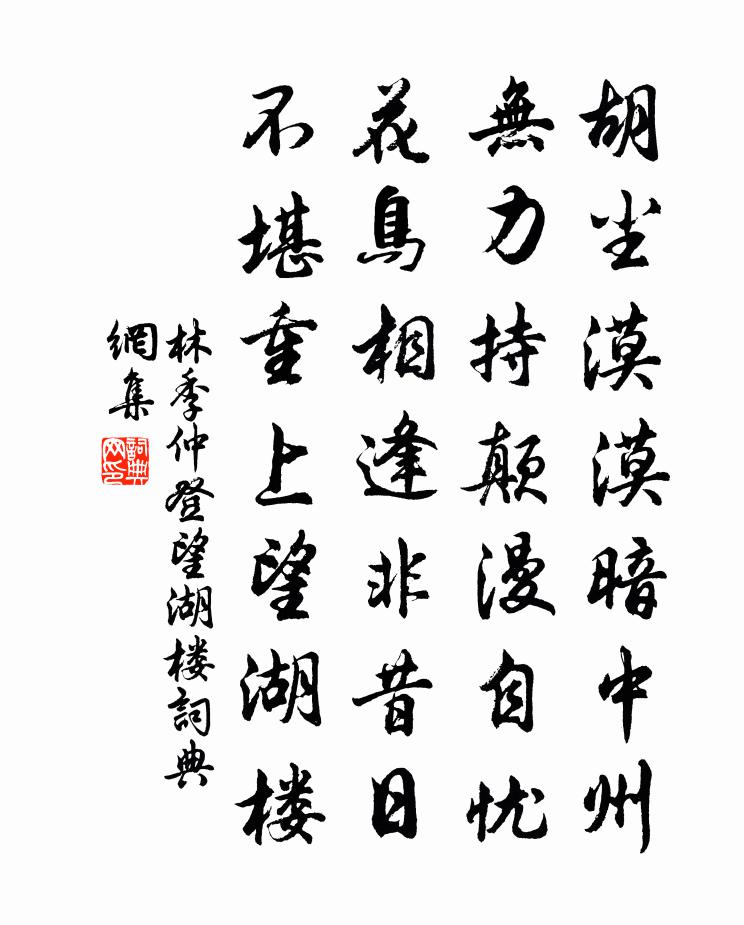 胡尘漠漠暗中州
無力持颠漫自忧
花鳥相逢非昔日
不堪重上望湖楼
林季仲登望湖楼詞典
網集
詞典网印